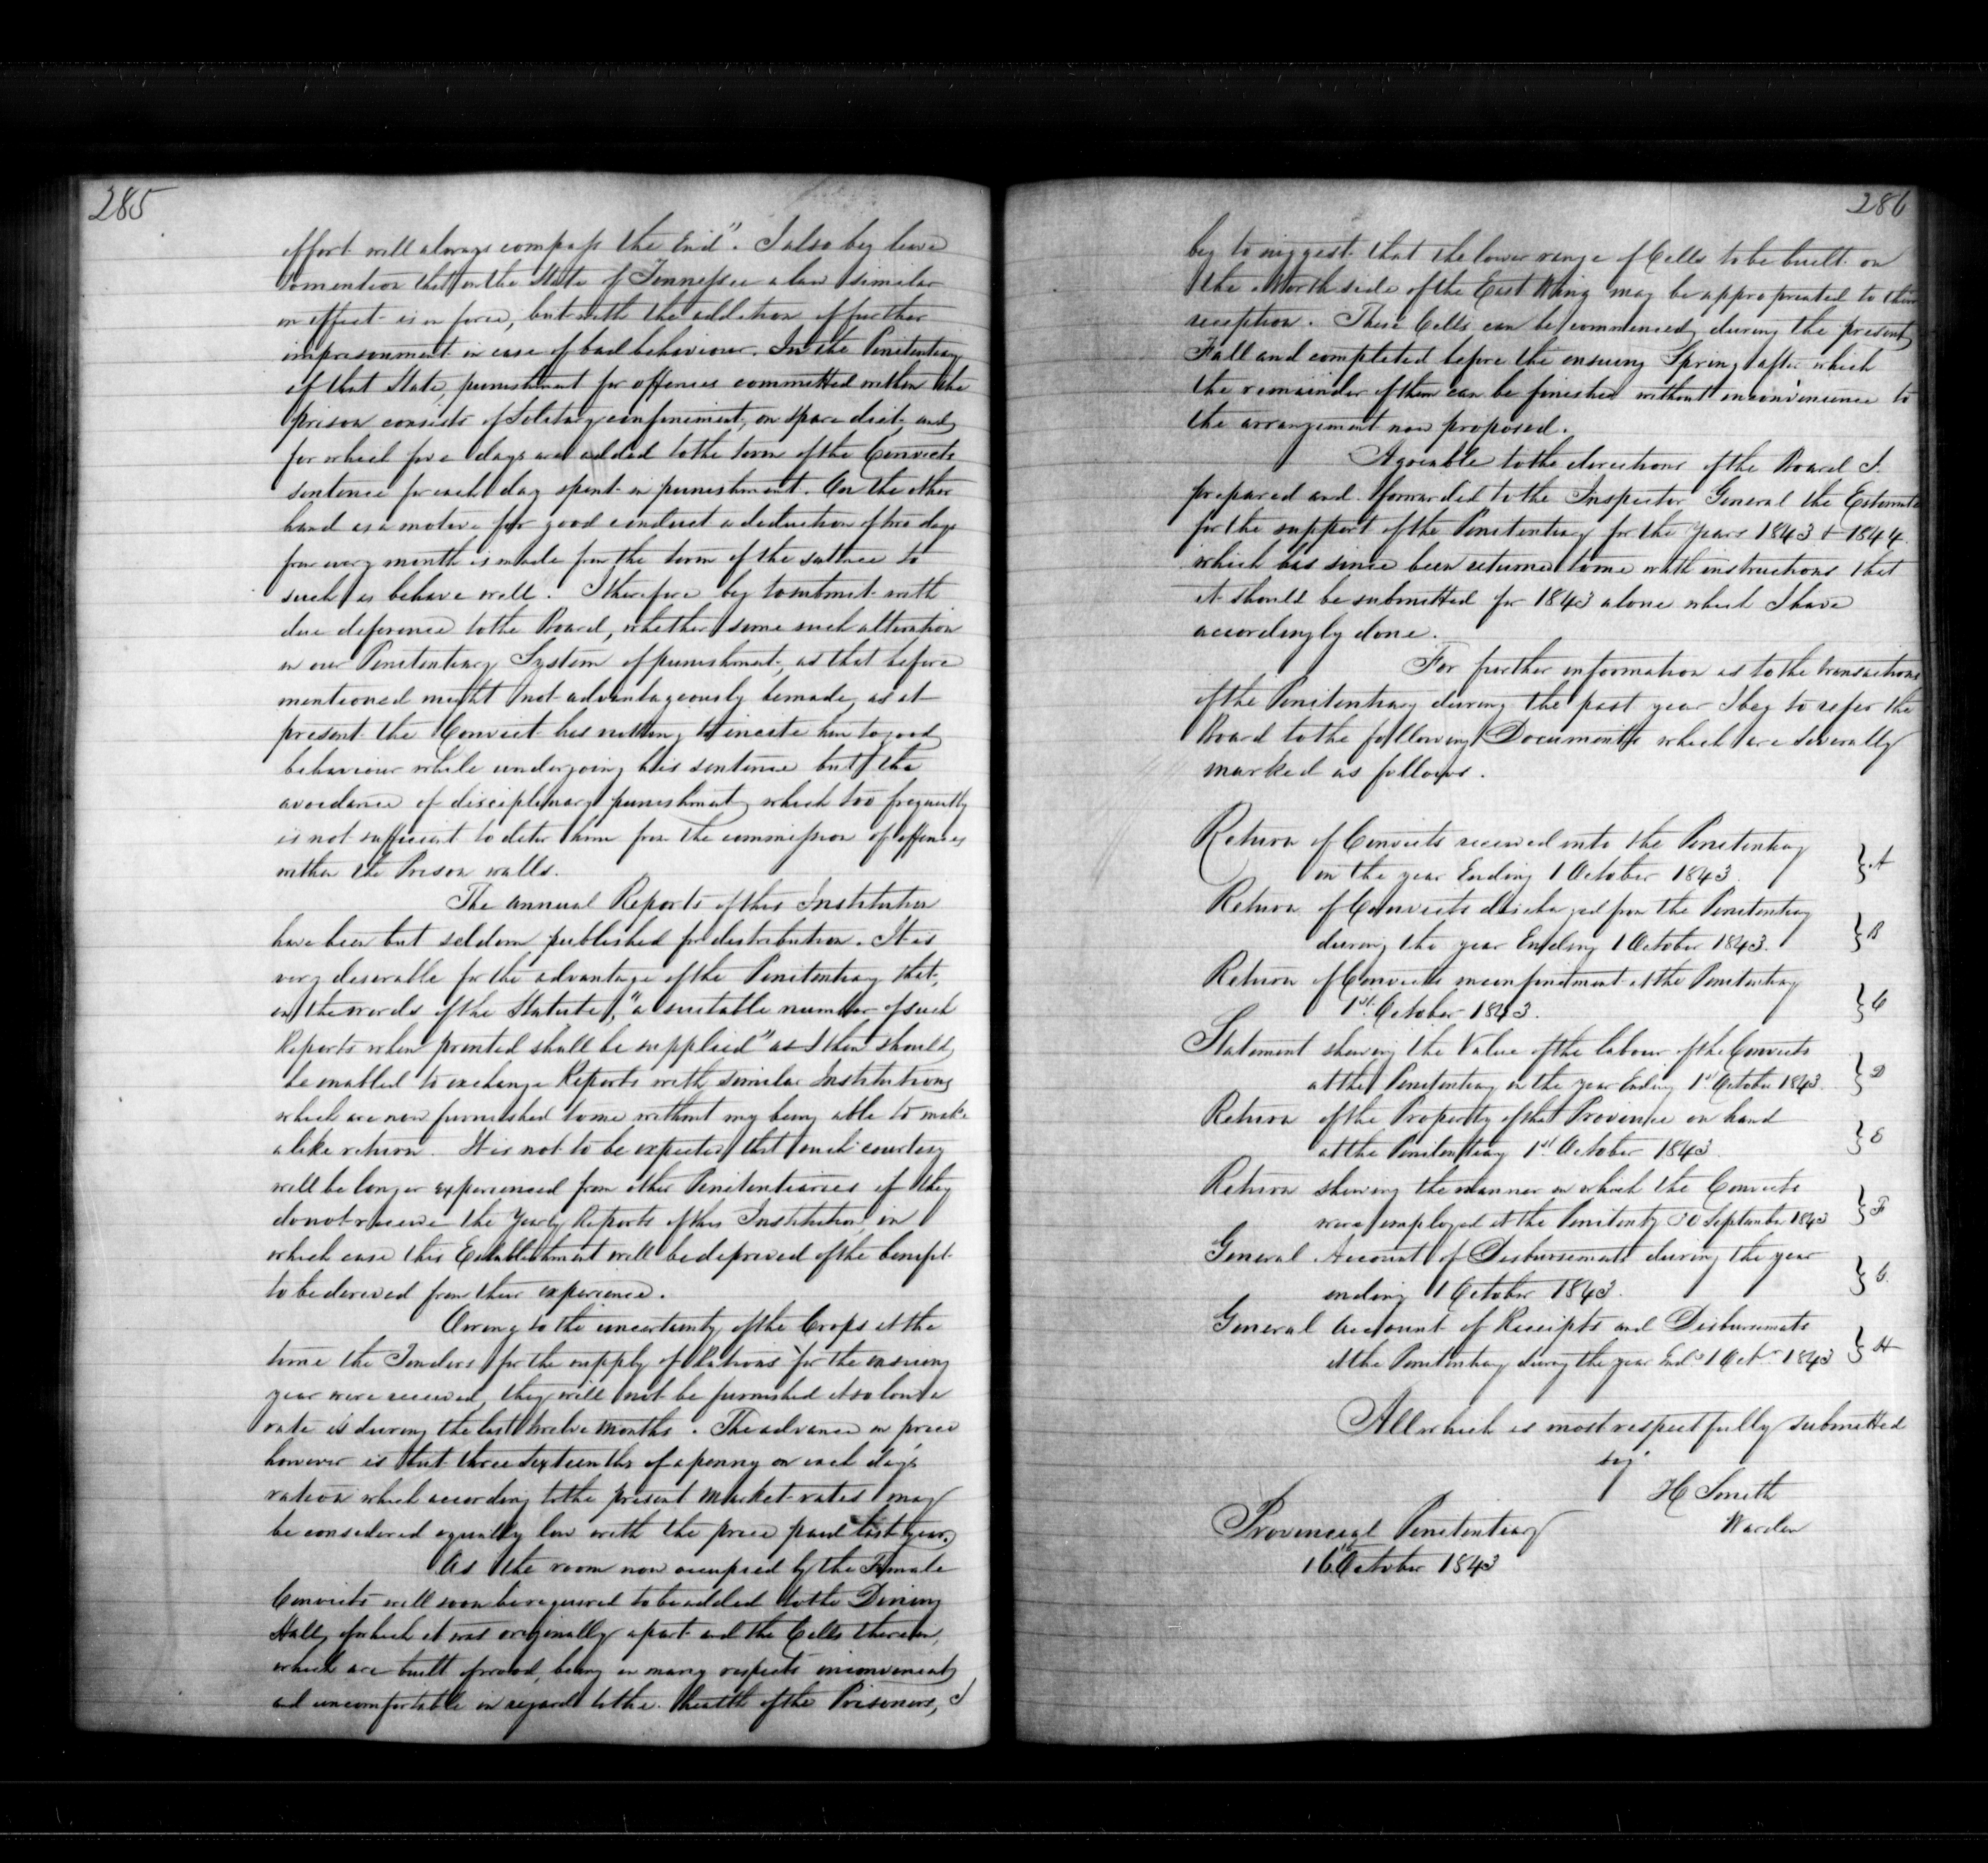 285
effort will always compass the End". I also beg leave
to mention that in the State of Tennessee a law similar
in effect is in force, but with the addition of further
imprisonment in case of bad behaviour. In the Penitentiary
of that State, punishment for offences committed within the
prison consists of Solitary confinement, on spare diet, and
for which five days are added to the term of the Convicts
sentence for each day spent in punishment. On the other
hand as a motive for good conduct a deduction of two days
from every month is made from the term of the sentence to
such as behave well. I therefore beg to submit with
due deference to the Board, whether some such alteration
in our Penitentiary System of punishment, as that before
mentioned might not advantageously be made, as at
present the Convict has nothing to incite him to good
behaviour while undergoing his sentence but the
avoidance of disciplinary punishment, which too frequently
is not sufficient to deter him from the commission of offences
within the Prison walls.
The annual Reports of this Institution
have been but seldom published for distribution. It is
very desirable for the advantage of the Penitentiary that,
in the words of the Statute, "a suitable number of such
Reports when printed shall be supplied" as I then should
be enabled to exchange Reports with similar Institutions
which are now furnished to me without my being able to make
a like return. It is not to be expected that such courtesy
will be longer experienced from other Penitentiaries if they
do not receive the Yearly Reports of this Institution, in
which case this Establishment will be deprived of the benefit
to be derived from their experience.
Owing to the uncertainty of the Crops at the
time the Tenders for the supply of Rations for the ensuing
year were received, they will not be furnished at so low a
rate as during the last twelve months. The advance in price
however is but three sixteenths of a penny on each day's
ration which according to the present market rates may
be considered equally low with the price paid last year.
As the room now occupied by the Female
Convicts will soon be required to be added to the Dining
Hall, of which it was originally a part and the Cells therein,
which are built of wood, being in many respects inconvenient,
and uncomfortable in regard to the health of the Prisoners, I
286
beg to suggest that the lower range of Cells to be built on
the North side of the East Wing may be appropriated to their
reception. These Cells can be commenced during the present
Fall and completed before the ensuing Spring after which
the remainder of them can be finished without inconvenience to
the arrangement now proposed.
Agreeable to the directions of the Board I
prepared and forwarded to the Inspector General the Estimate
for the support of the Penitentiary for the Years 1843 & 1844
which has since been returned to me with instructions that
it should be submitted for 1843 alone which I have
accordingly done.
For further information as to the transactions
of the Penitentiary during the past year I beg to refer the
Board to the following Documents which are severally
marked as follows.
Return of Convicts received into the Penitentiary
in the year Ending 1 October 1843. } A
Return of Convicts discharged from the Penitentiary
during the year Ending 1 October 1843. } B
Return of Convicts in confinement at the Penitentiary
1st October 1843. } C
Statement shewing the Value of the labour of the Convicts
at the Penitentiary in the year Ending 1st October 1843. } D
Return of the Property of the Province on hand
at the Penitentiary 1st October 1843. } E
Return shewing the manner in which the Convicts
were employed at the Penitenty 30 September 1843 } F
General Account of Disbursements during the year
ending 1 October 1843. } G.
General Account of Receipts and Disbursements
at the Penitentiary during the year End.g 1 Octr 1843 } H
All which is most respectfully submitted
sig
H Smith
Warden
Provincial Penitentiary
16th October 1843